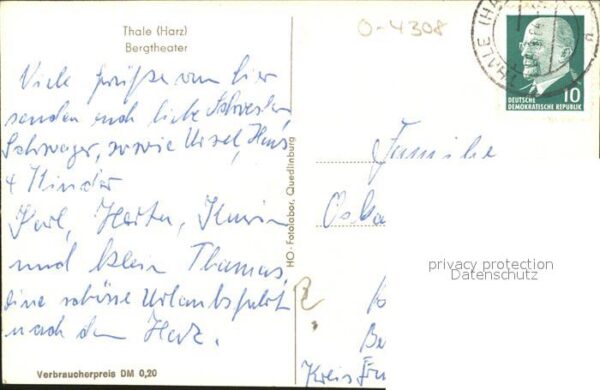 Thale (Harz)
Bergtheater
O-4308
THALE (HA
DEUTSCHE
DEMOKRATISCHE REPUBLIK
10
Viele Grüße von hier
senden euch liebe Schwester,
Schwager, sowie Ursel, Hans
4 Kinder
Karl, Herta, Karin
und klein Thomas,
eine schöne Urlaubsfahrt
nach dem Harz.
Verbraucherpreis DM 0,20
HO-Fotolabor, Quedlinburg
Familie
Oska
privacy protection
Datenschutz
Kreis